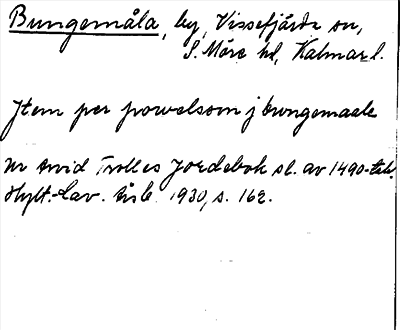 Bungemåla, by, Vissefjärda sn,
S. Möre hd, Kalmar l.
Jtem per powelsom j bungemaale
ur Arvid Trolles Jordebok sl. av 1490-tal.
Hylt.-Cav. Årsb. 1930, s. 162.